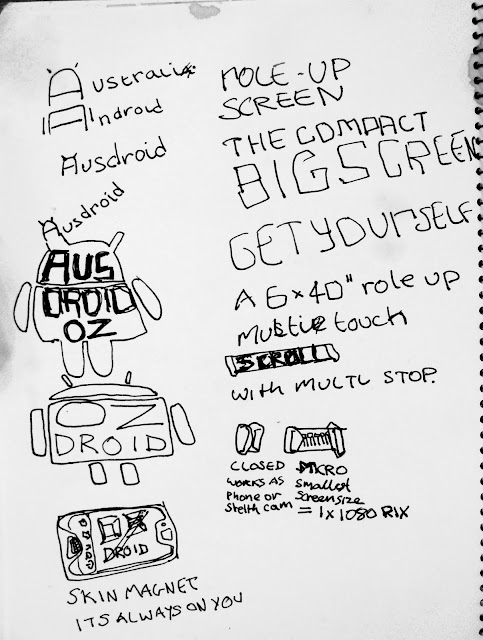 Australia
Android
Ausdroid
Ausdroid
AUS
DROID
OZ
OZ
DROID
DROID
SKIN MAGNET
ITS ALWAYS ON YOU
ROLE-UP
SCREEN
THE COMPACT
BIGSCREEN
GETYOURSELF
A 6x40" role up
touch
SCROLL
WITH MULTL STOP.
CLOSED
WORKS AS
Phone or
Stelth cam
MICRO
smallest
Screensize
= 1x1080 PIX